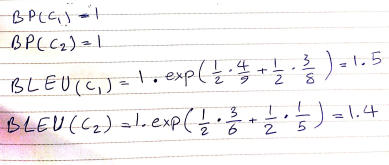 BP(C₁) = 1
BP(C₂) = 1
BLEU(C₁) = 1 . exp(1/2 . 4/9 + 1/2 . 3/8) = 1.5
BLEU(C₂) = 1. exp(1/2 . 3/6 + 1/2 . 1/5) = 1.4